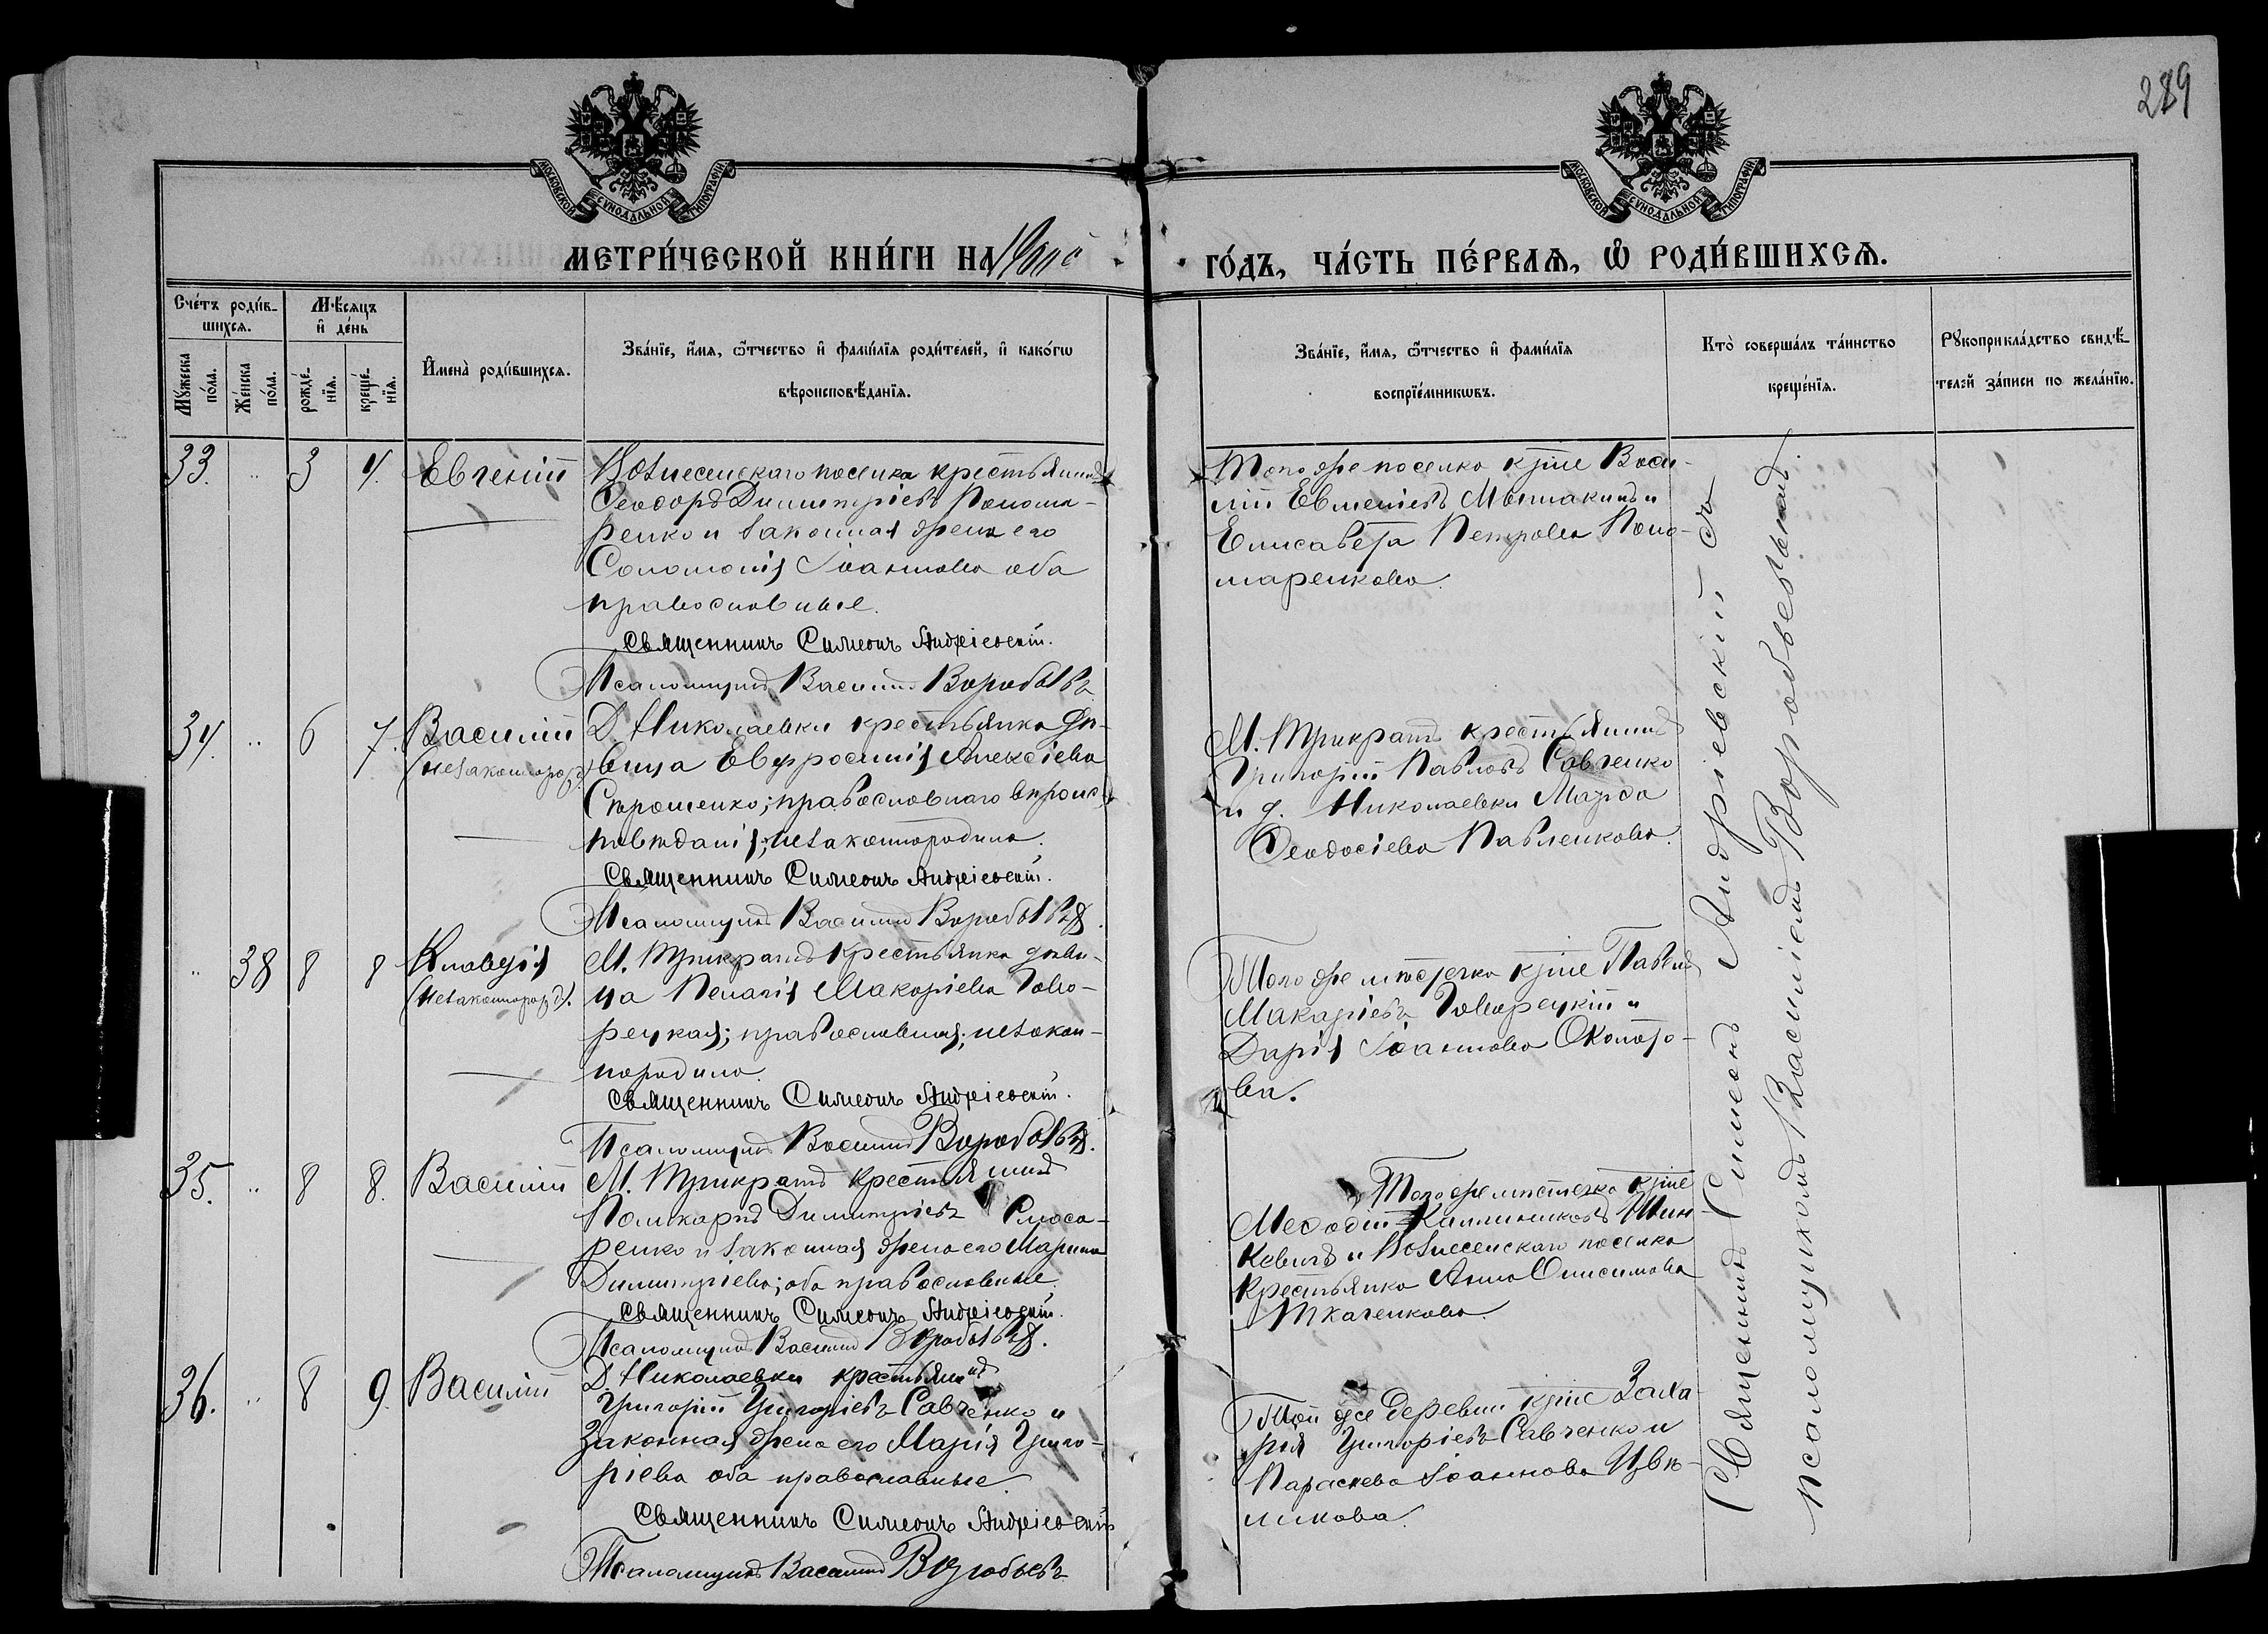 289
МОСКОВСКОЙ СѴНОДАЛЬНОЙ ТИПОГРАФІИ
МОСКОВСКОЙ СѴНОДАЛЬНОЙ ТИПОГРАФІИ
МЕТРИ́ЧЕСКОЙ КНИ́ГИ НА
ГО́ДЪ, ЧА́СТЬ ПЕ́РВАѦ, Ѡ҆ РОДИ́ВШИХСѦ.
Сче́тъ роди́в-
шихсѧ.
Мꙋ́жеска по́ла.
Же́нска по́ла.
Мѣ́сѧцъ
и҆ де́нь
рожде́-нїѧ.
креще́-нїѧ.
И҆мена̀ роди́вшихсѧ.
Зва́нїе, и҆́мѧ, ѻ҆́тчество и҆ фами́лїѧ роди́телей, и҆ како́гѡ
вѣроисповѣ́данїѧ.
Зва́нїе, и҆́мѧ, ѻ҆́тчество и҆ фами́лїѧ
воспрїе́мникѡвъ.
Кто̀ соверша́лъ та́инство
креще́нїѧ.
Рꙋкоприкла́дство свидѣ́-
телей за́писи по жела́нїю.
33. " 3 4. Евгеній
Вознесенскаго поселка крестьянинъ
Ѳеодоръ Димитріевъ Понома-
ренко и законная жена его
Соломонія Іоаннова оба
православные.
Священникъ Симеонъ Андріевскій.
Псаломщикъ Василій Воробьевъ
Того же поселка кр̃не Васи-
лій Евменіевъ Мышакинъ и
Елисавета Петрова Поно-
маренкова.
34. " 6 7. Василій
(незаконнорожд.)
Д. Николаевки крестьянка дѣ-
вица Евфросинія Алексіева
Сѣрошенко; православнаго вѣроис-
повѣданія; незаконнородила.
Священникъ Симеонъ Андріевскій.
Псаломщикъ Василій Воробьевъ.
М. Трикратъ крестьянинъ
Григорій Павловъ Савченко
и д. Николаевки Марѳа
Ѳеодосіева Павленкова.
" 38 8 8 Клавдія
(незаконнорожд).
М. Трикратъ крестьянка дѣви-
ца Пелагія Макаріева Гово-
рецкая; православная; незакон-
нородила.
Священникъ Симеонъ Андріевскій.
Псаломщикъ Василій Воробьевъ.
Того же мѣстечка кр̃не Павелъ
Макаріевъ Говорецкій и
Дарія Іоаннова
35. " 8 8. Василій
М. Трикратъ крестьянинъ
Поликарпъ Димитріевъ Слюса-
ренко и законная жена его Марина
Димитріева; оба православные.
Священникъ Симеонъ Андріевскій.
Псаломщикъ Василій Воробьевъ.
Того же мѣстечка кр̃не
Меѳодій Каллиниковъ Шин-
кевичъ и Вознесенскаго поселка
крестьянка Анна Онисимова
Ткаченкова.
36. " 8 9. Василій
Д. Николаевки крестьянинъ
Григорій Григоріевъ Савченко и
законная жена его Марія Григо-
ріева оба православные.
Священникъ Симеонъ Андріевскій
Псаломщикъ Василій Воробьевъ
Той же деревни кр̃не Заха-
рія Григоріевъ Савченко и
Параскева Іоаннова Цвѣ-
Священникъ Симеонъ Андріевскій съ
псаломщикомъ Василіемъ Воробьевымъ.